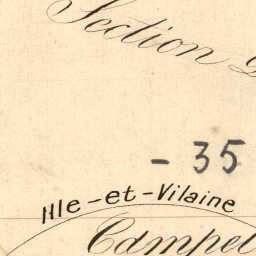 Section
- 35
Ille-et-Vilaine
Campel